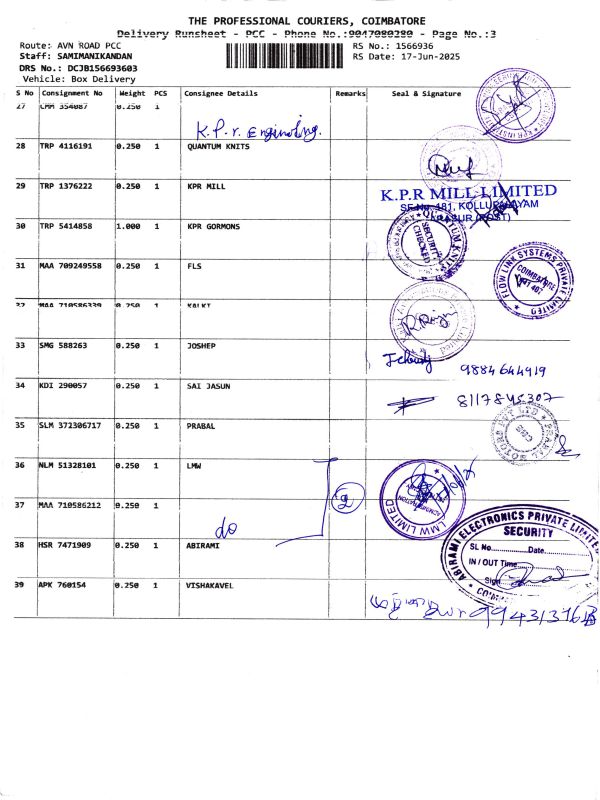 THE PROFESSIONAL COURIERS, COIMBATORE
Delivery Runsheet - PCC - Phone No.:9047080280 - Page No.:3
Route: AVN ROAD PCC
RS No.: 1566936
Staff: SAMIMANIKANDAN
RS Date: 17-Jun-2025
DRS No.: DCJB156693603
Vehicle: Box Delivery
S No Consignment No Weight PCS Consignee Details Remarks Seal & Signature
27 LMM 354087 0.250 1
K.P.r. Enginering.
28 TRP 4116191 0.250 1 QUANTUM KNITS
29 TRP 1376222 0.250 1 KPR MILL
K.P.R MILL LIMITED
SF.No. 181, KOLLUPALAYAM
ARASUR (POST)
30 TRP 5414858 1.000 1 KPR GORMONS
QUANTUM KNITS
SECURITY
CHECKED
31 MAA 709249558 0.250 1 FLS
FLOW LINK SYSTEMS PRIVATE LIMITED
COIMBATORE
32 MAA 710586339 0.250 1 KALKI
33 SMG 588263 0.250 1 JOSHEP
9884644919
34 KDI 290057 0.250 1 SAI JASUN
8117845307
35 SLM 372306717 0.250 1 PRABAL
36 NLM 51328101 0.250 1 LMW
2
LMW LIMITED
37 MAA 710586212 0.250 1
do
38 HSR 7471909 0.250 1 ABIRAMI
ABIRAMI ELECTRONICS PRIVATE LIMITED
SECURITY
SL No. Date
IN / OUT Time
Sign
39 APK 760154 0.250 1 VISHAKAVEL